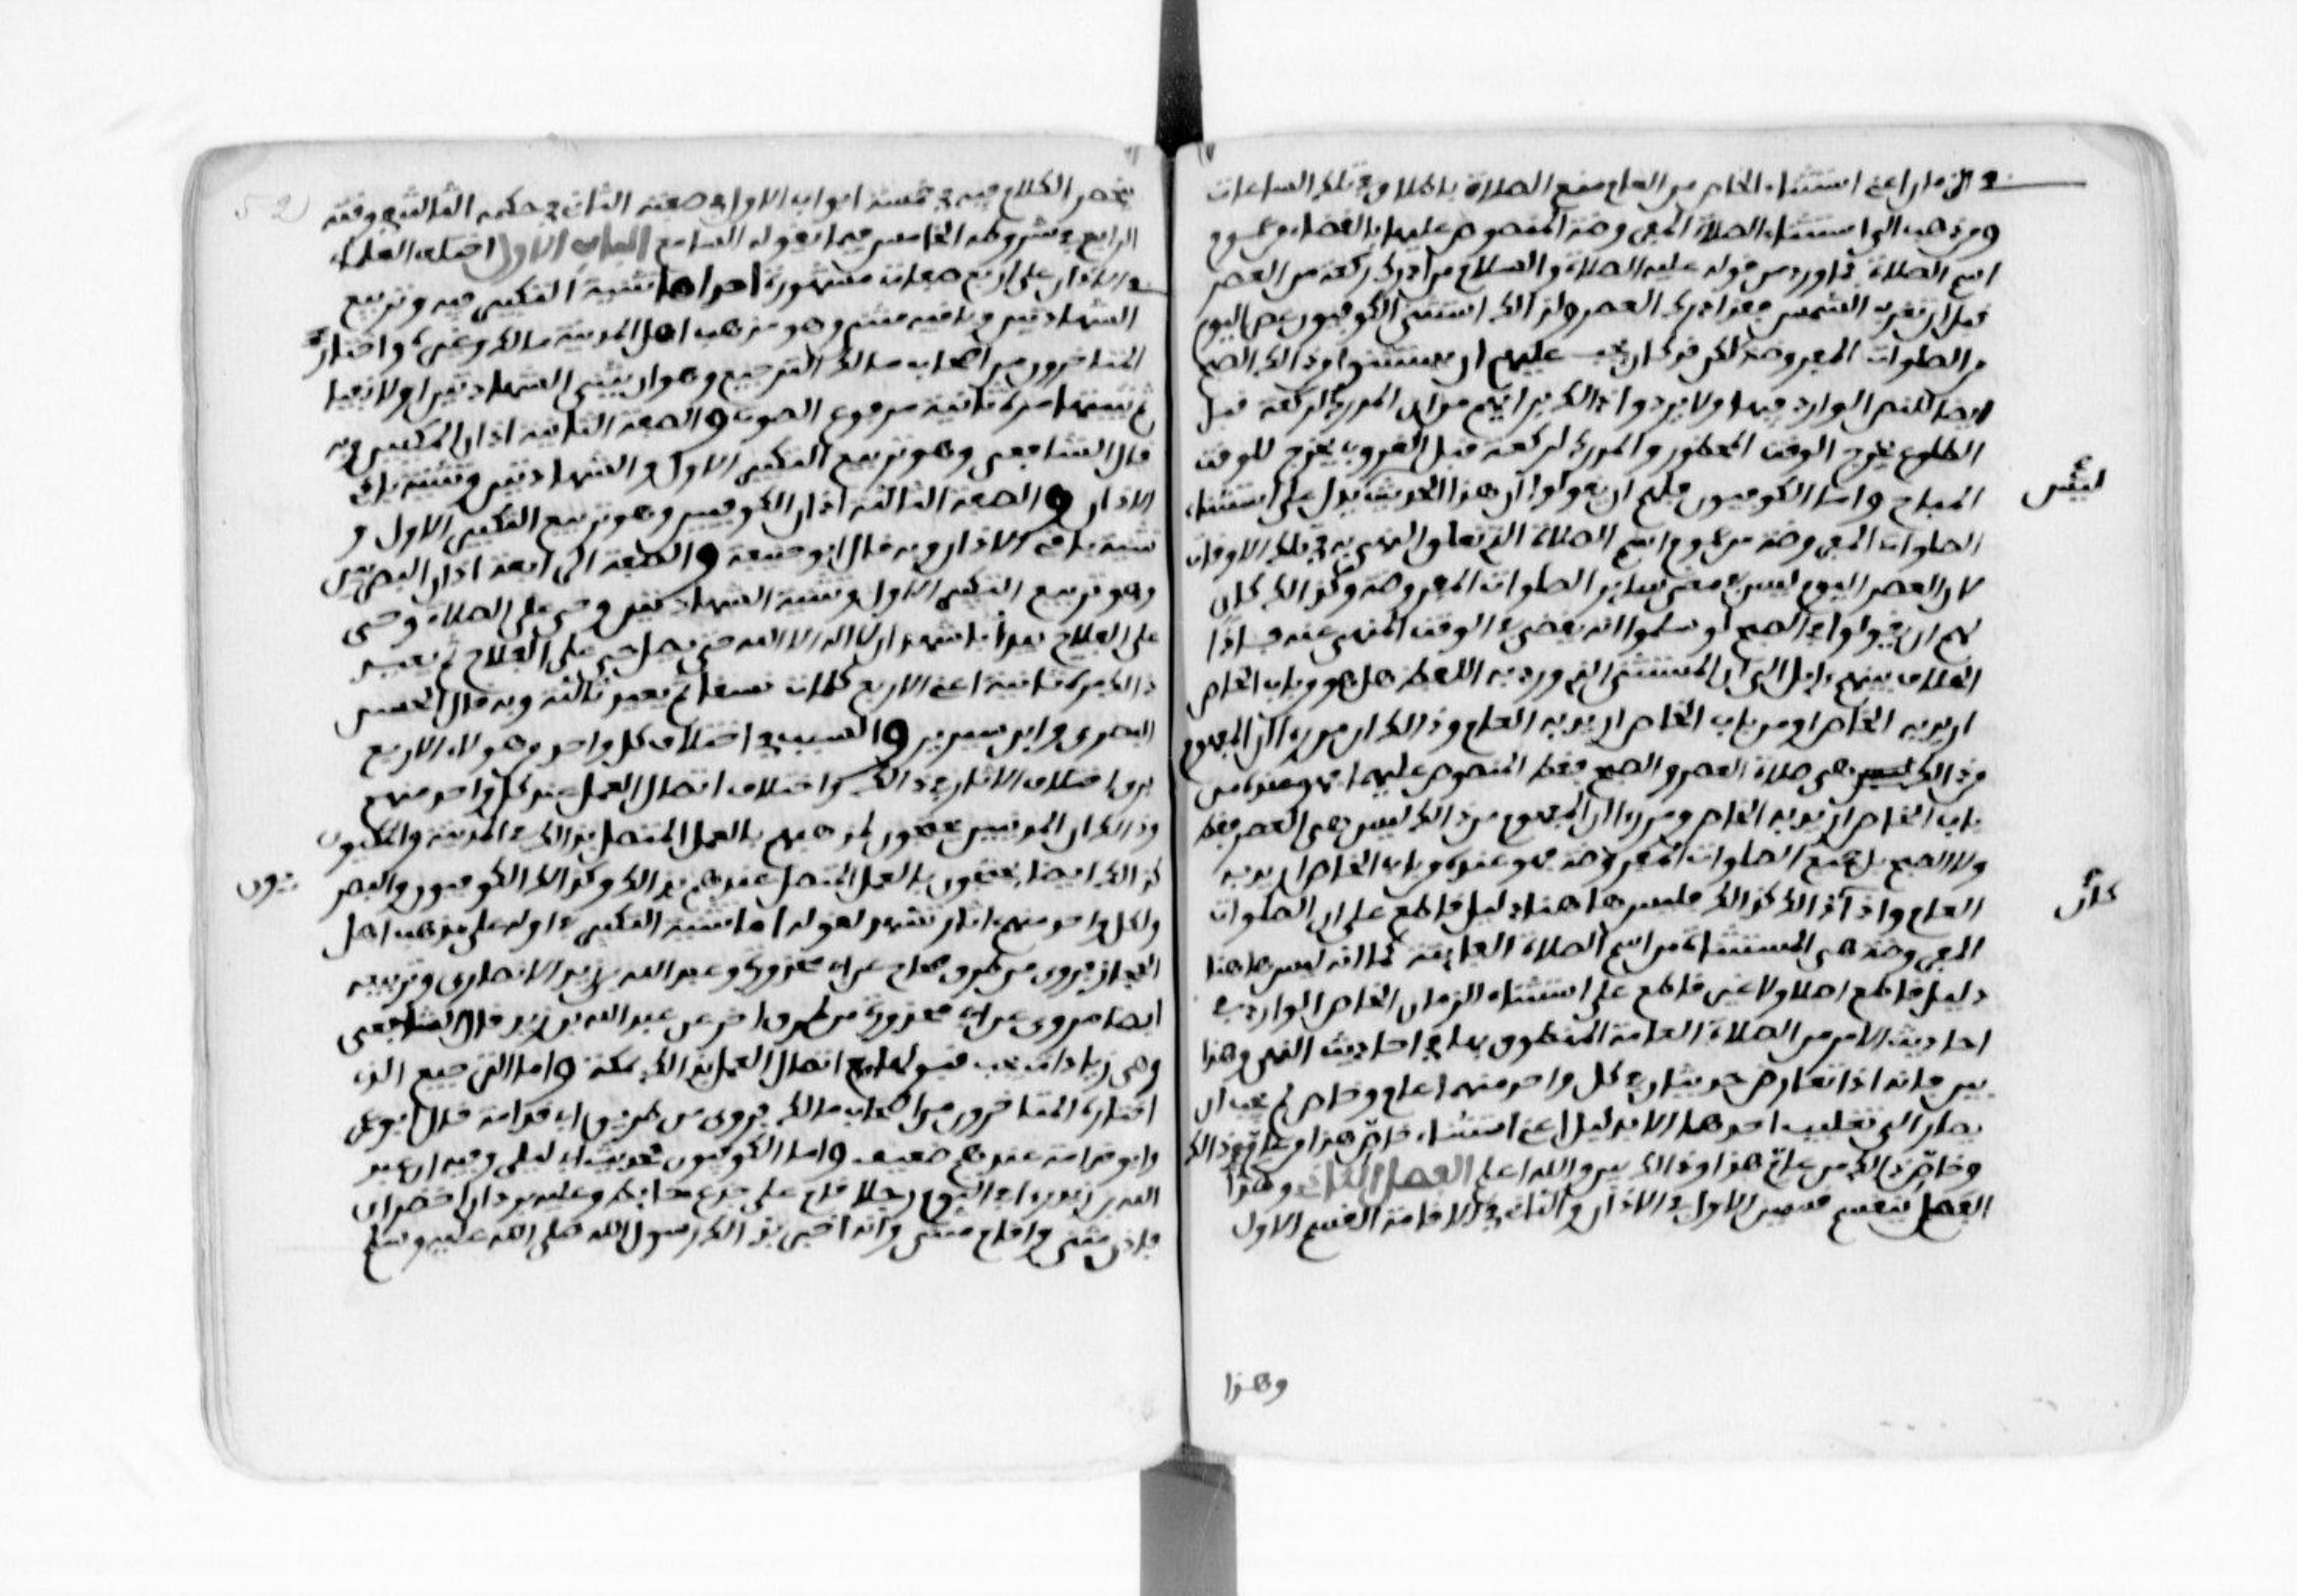 في الزمان اعني استثناء الخاص من العام منع الصلاة باطلاق في تلك الساعات
ومن ذهب الى استثناء الصلاة المفروضة المنصوص عليها بالقضاء من عموم
اسم الصلاة بما ورد من قوله عليه الصلاة والسلام من ادرك ركعة من العصر
قبل ان تغرب الشمس فقد ادرك العصر ولذالك استثنى الكوفيون عصر اليوم
من الصلوات المفروضة لكن قد كان يجب عليهم ان يستثنوا من ذالك الصبح
ايضا للنص الوارد فيها ولا يردوا ذالك برايهم من ان المدرك لركعة قبل
الطلوع يخرج للوقت المحظور والمدرك لركعة قبل الغروب يخرج للوقت
المباح واما الكوفيون فلهم ان يقولوا ان هذا الحديث ليس يدل على استثناء
الصلوات المفروضة من عموم اسم الصلاة التي تعلق النهي به في تلك الاوقات
لان العصر اليوم ليس في معنى سائر الصلوات المفروضة وكذالك كان
لهم ان يقولوا في الصبح لو سلموا انه يقضى في الوقت المنهي عنه فاذا
الخلاف بينهم ءايل الى ان المستثنى الذي ورد به اللفظ هل هو من باب الخاص
اريد به الخاص او من باب الخاص اريد به العام وذالك ان من راى ان المفهوم
من ذالك هي صلاة العصر والصبح فقط المنصوص عليهما فهو عنده من
باب الخاص اريد به الخاص ومن راى ان المفهوم من ذالك ليس هي العصر فقط
ولا الصبح بل جميع الصلوات المفروضة فهو عنده من باب الخاص اريد به
العام واذا كان ذالك كذالك فليس هاهنا دليل قاطع على ان الصلوات
المفروضة هي المستثناة من اسم الصلاة الفايتة كما انه ليس هاهنا
دليل قاطع اصلا ولا غير قاطع على استثناء الزمان الخاص الوارد في
احاديث الامر من الصلاة العامة المنطوق بها في احاديث النهي وهذا
بين فانه اذا تعارض حديثان في كل واحد منهما عام وخاص لم يجب ان
يصار الى تغليب احدهما الا بدليل اعني استثناء خاص هذا من عام ذالك
وخاص ذالك من عام هذا وذالك بين والله اعلم الفصل الثاني وهذا
الفصل ينقسم قسمين الاول في الاذان والثاني في الاقامة القسم الاول
وهذا
ينحصر الكلام فيه في خمسة ابواب الاول في صفته الثاني في حكمه الثالث في وقته
الرابع في شروطه الخامس فيما يقوله السامع الباب الاول اختلف العلماء
في الاذان على اربع صفات مشهورة احداها تثنية التكبير فيه وتربيع
الشهادتين وباقيه مثنى وهو مذهب اهل المدينة مالك وغيره واختار
المتاخرون من اصحاب مالك الترجيع وهو ان يثني الشهادتين اولا خفيا
ثم يثنيها مرة ثانية مرفوع الصوت والصفة الثانية اذان المكيين وبه
قال الشافعي وهو تربيع التكبير الاول والشهادتين وتثنية باقي
الاذان والصفة الثالثة اذان الكوفيين وهو تربيع التكبير الاول و
تثنية باقي الاذان وبه قال ابو حنيفة والصفة الرابعة اذان البصريين
وهو تربيع التكبير الاول وتثنية الشهادتين وحي على الصلاة وحي
على الفلاح يبدأ باشهد ان لا اله الا الله حتى يصل حي على الفلاح ثم يعيد
ذالك مرة ثانية اعني الاربع كلمات نسقا ثم يعيد ثالثة وبه قال الحسن
البصري وابن سيرين والسبب في اختلاف كل واحد من هؤلاء الاربع
فرق اختلاف الاثار في ذالك واختلاف اتصال العمل عند كل واحد منهم
وذالك ان المدنيين يحتجون لمذهبهم بالعمل المتصل بذالك في المدينة والمكيون
كذالك ايضا يحتجون بالعمل المتصل عندهم بذالك وكذالك الكوفيون والبصريون
ولكل واحد منهم اثار تشهد لقوله اما تثنية التكبير في اوله على مذهب اهل
الحجاز فروي من طرق صحاح عن ابي محذورة وعبد الله بن زيد الانصاري وتربيعه
ايضا مروي عن ابي محذورة من طرق اخر عن عبد الله بن زيد قال الشافعي
وهي زيادات يجب قبولها مع اتصال العمل بذالك بمكة واما الترجيع الذي
اختاره المتاخرون من اصحاب مالك فروي من طريق ابي قدامة قال ابو عمر
وابو قدامة عندهم ضعيف واما الكوفيون فحديث ابي ليلى وفيه ان عبد
الله بن زيد راى في النوم رجلا قام على جذع حائط وعليه بردان اخضران
فاذن مثنى واقام مثنى وانه اخبر بذالك رسول الله صلى الله عليه وسلم